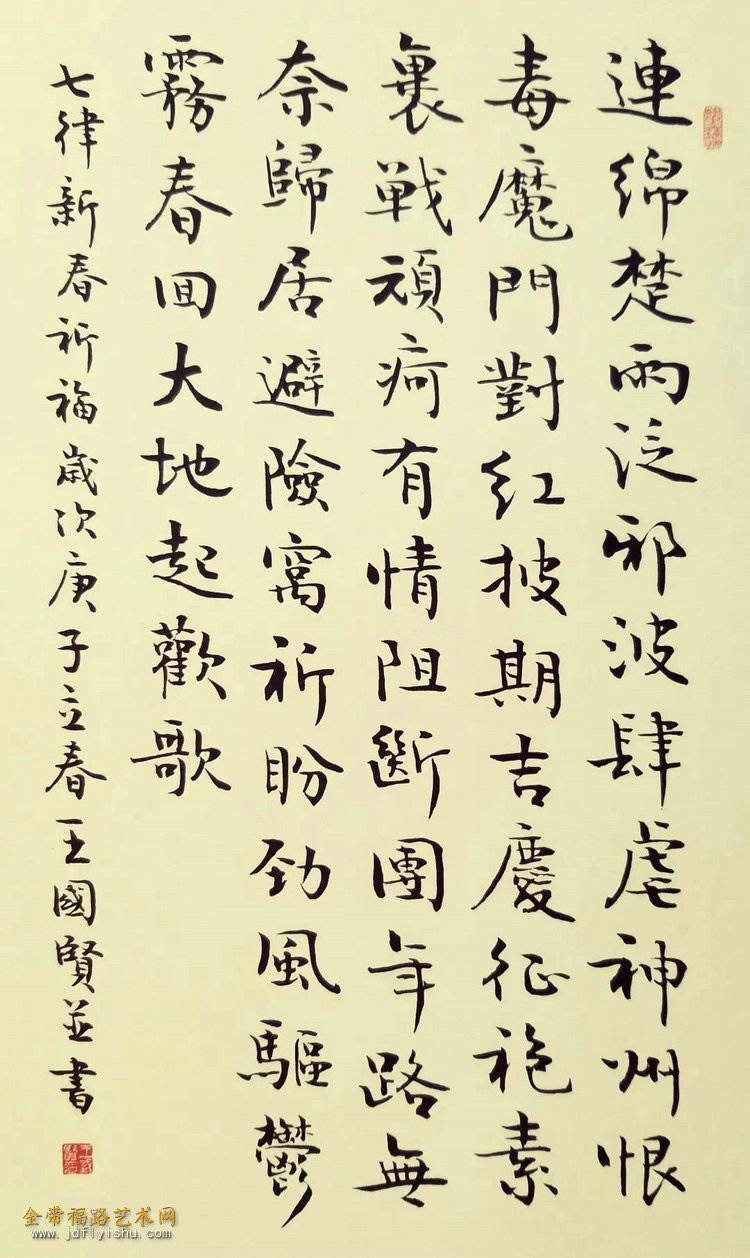 連綿楚雨泛邪波肆虐神州恨
毒魔門對紅披期吉慶征袍素
裹戰頑疴有情阻斷團年路無
奈歸居避險窩祈盼勁風驅鬱
霧春回大地起歡歌
七律新春祈福歲次庚子立春王國賢並書
金带福路艺术网
www.jdflyishu.com